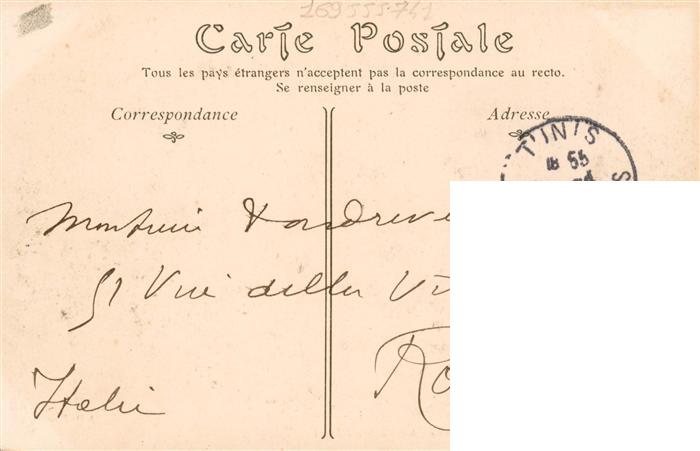 169555-741
Carte Postale
Tous les pays étrangers n'acceptent pas la correspondance au recto.
Se renseigner à la poste
Correspondance
Adresse
TUNIS
18 55
Monsieur
51 Via della
Italie